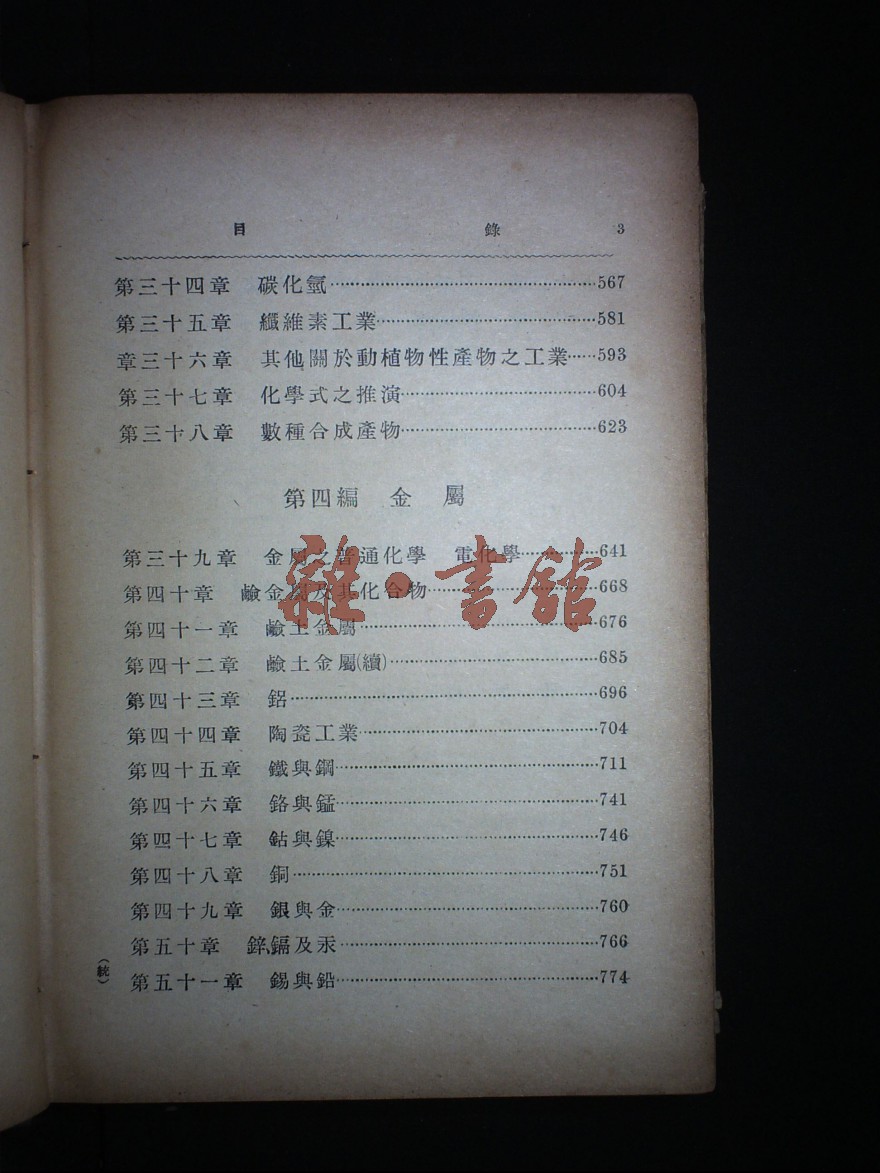 目 錄 3
第三十四章 碳化氫……567
第三十五章 纖維素工業……581
章三十六章 其他關於動植物性產物之工業……593
第三十七章 化學式之推演……604
第三十八章 數種合成產物……623
第四編 金 屬
第三十九章 金屬之普通化學 電化學……641
第四十章 鹼金屬及其化合物……668
第四十一章 鹼土金屬……676
第四十二章 鹼土金屬(續)……685
第四十三章 鋁……696
第四十四章 陶瓷工業……704
第四十五章 鐵與鋼……711
第四十六章 鉻與錳……741
第四十七章 鈷與鎳……746
第四十八章 銅……751
第四十九章 銀與金……760
第五十章 鋅,鎘及汞……766
第五十一章 錫與鉛……774
(統)
雜·書館